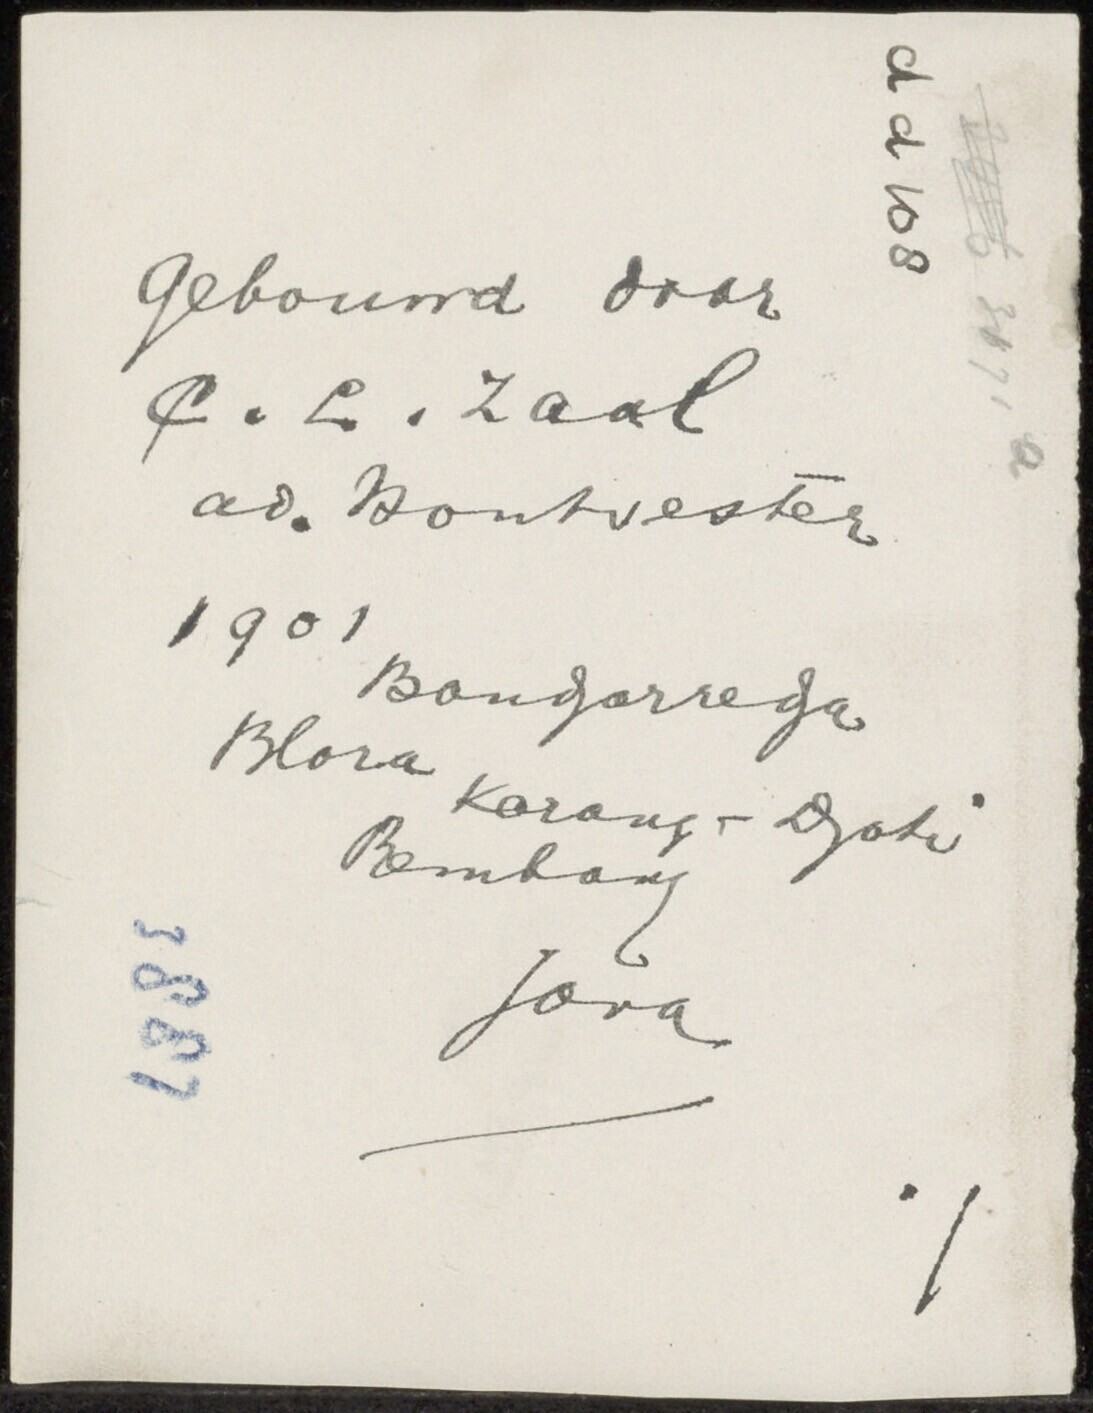 Gebouwd door
C. L. Zaal
ad. Houtvester
1901
Bangarredja
Blora
Karang-Djati
Rembang
Java
dd 108
3887